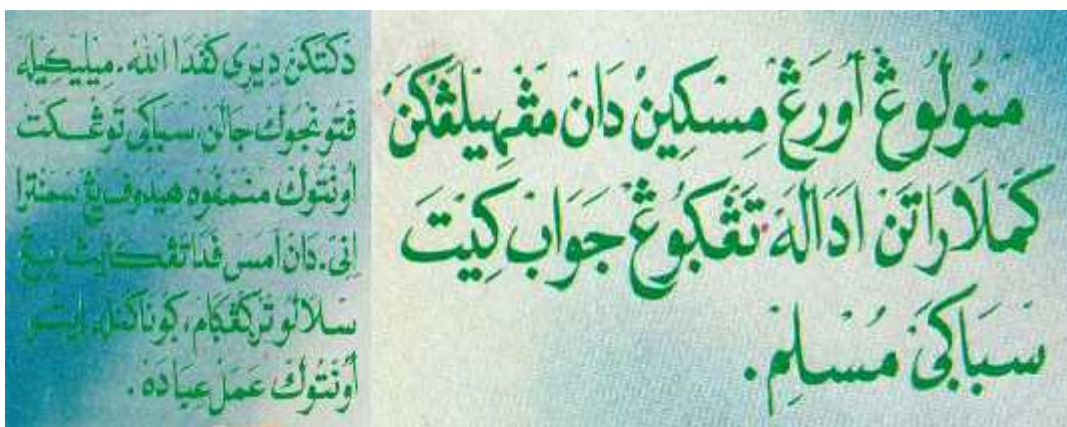 منولوڠ أورڠ مسكين دان مڠهيلڠكن
كملاراتن اداله تڠكوڠ جواب كيت
سباكي مسلم.
دكتكن ديري كفدا الله. ميليكيله
فتونجوك جالن سباكي توڠكت
اونتوك منمفوه هيدوف يڠ سمنترا
اني. دان امس فدا يڠ
سلالو تركڠكام، كوناكنله ايت
اونتوك عمل عبادة.